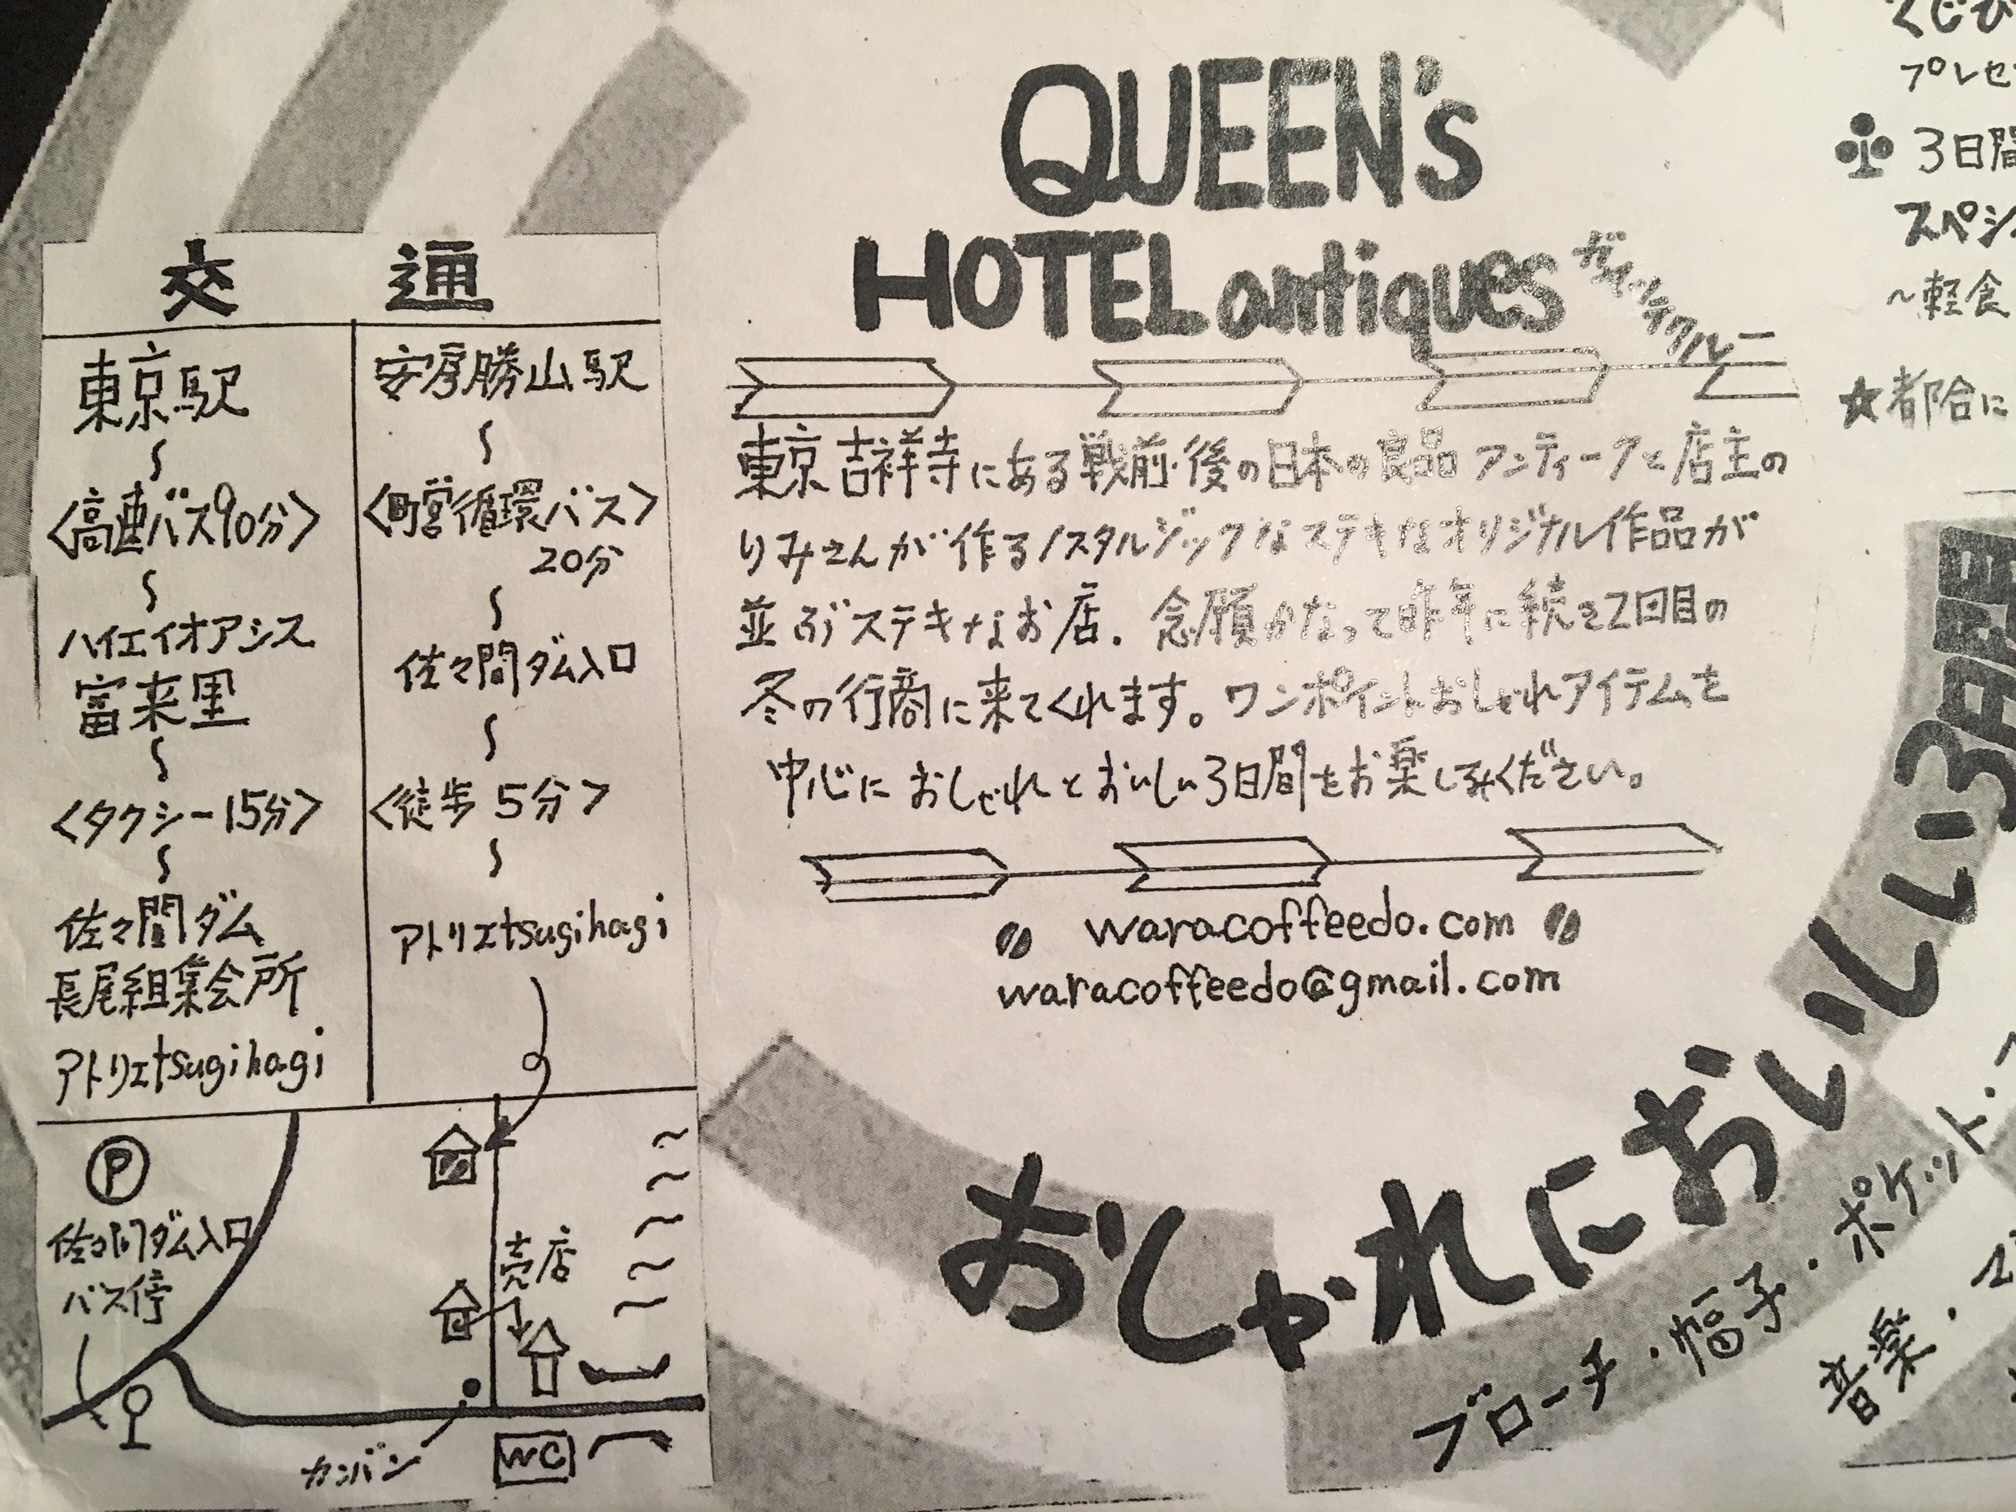 交通
東京駅
〜
<高速バス90分>
〜
ハイエイオアシス
富来里
〜
<タクシー15分>
〜
佐々間ダム
長尾組集会所
アトリエtsugihagi
安房勝山駅
〜
<町営循環バス>
20分
〜
佐々間ダム入口
〜
<徒歩5分>
〜
アトリエtsugihagi
P
佐々間ダム入口
バス停
売店
カンバン
WC
QUEEN's
HOTEL antiques
東京吉祥寺にある戦前・後の日本の良品アンティークと店主の
りみさんが作るノスタルジックなステキなオリジナル作品が
並ぶステキなお店. 念願かなって昨年に続き2回目の
冬の行商に来てくれます。ワンポイントおしゃれアイテムを
中心におしゃれとおいしい3日間をお楽しみください。
waracoffeedo.com
waracoffeedo@gmail.com
おしゃれにおいしい3日間
ブローチ・帽子・ポケット・
音楽・
くじび
プレゼ
3日間
スペシ
~軽食
★都合に